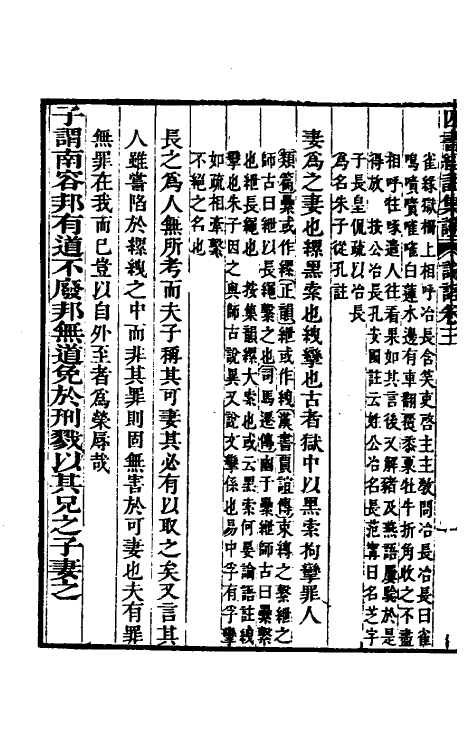 四書經註集證 論語卷三
雀綠獄柵上相呼冶長含笑吏啓主主敎問冶長冶長曰雀
鳴嘖嘖唯唯白蓮水邊有車翻覆黍粟牡牛折角收之不盡
相呼往啄遣人往看果如其言後又解豬及燕語屢驗於是
得放 按公冶長孔安國註云姓公冶名長范甯曰名芝字
子長皇侃疏以冶長
爲名朱子從孔註
妻爲之妻也縲黑索也絏攣也古者獄中以黑索拘攣罪人
類篇纍或作縲正韻紲或作絏漢書賈誼傳束縛之繫紲之
師古曰紲以長繩繫之也司馬遷傳幽于纍紲師古曰纍繫
也紲長繩也 按集韻縲大索也或云黑索何晏論語註絏
攣也朱子因之與師古說異又說文攣係也易中孚有孚攣
如疏相牽繫
不絕之名也
長之爲人無所考而夫子稱其可妻其必有以取之矣又言其
人雖嘗陷於縲絏之中而非其罪則固無害於可妻也夫有罪
無罪在我而已豈以自外至者爲榮辱哉
子謂南容邦有道不廢邦無道免於刑戮以其兄之子妻之